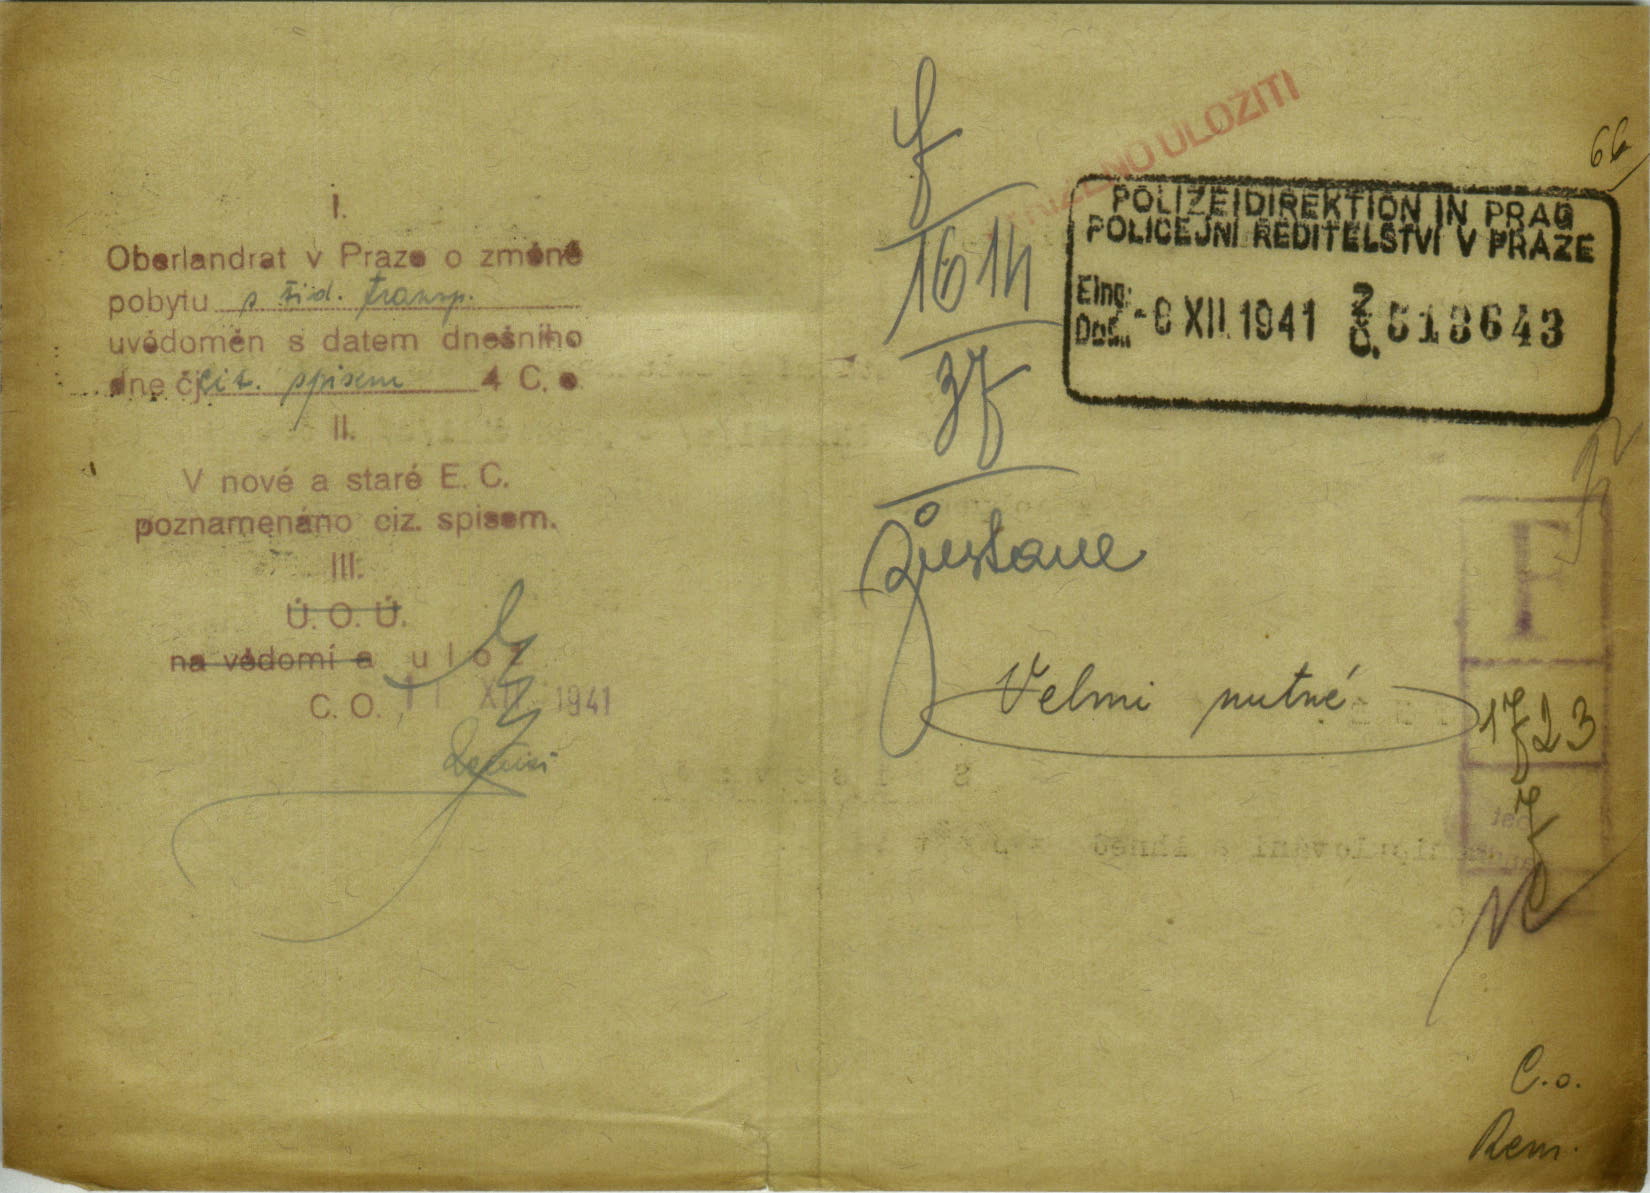 I.
Oberlandrat v Praze o změně
pobytu s žid. transp.
uvědoměn s datem dnešního
dne čj. cit. spisem 4 C.
II.
V nové a staré E. C.
poznamenáno ciz. spisem.
III.
Ú. O. Ú.
na vědomí a ulož
C. O. 11 XII. 1941
ULOŽITI
1614
37
zůstane
Velmi nutné
66
POLIZEIDIREKTION IN PRAG
POLICEJNÍ ŘEDITELSTVÍ V PRAZE
Eing.:
Doš.: -8 XII. 1941 Z. Č. 518643
E
1723
C.o.
Rem.